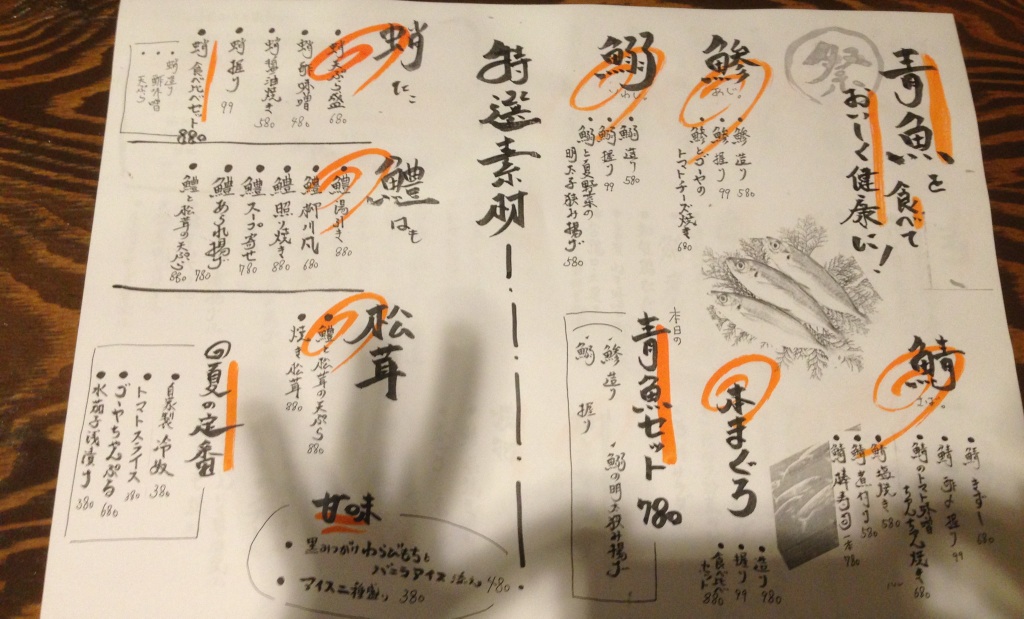 青魚を食べて
おいしく健康に!
祭
鯵
あじ。
・鯵 造り 580
・鯵 握り 99
・鯵とゴーヤの
トマトチーズ焼き 680
鰯
いわし。
・鰯 造り 580
・鰯 握り 99
・鰯と夏野菜の
明太子挟み揚げ 580
鯖
さば。
・鯖 きずし 680
・鯖 握り 99
・鯖のトマト味噌
ちゃんちゃん焼き 680
・鯖 塩焼き 580
・鯖 煮付け 580
・鯖 棒寿司 一本 780
本まぐろ
・造り 980
・握り 99
・食べ比べ
セット 880
本日の
青魚セット 780
鯵 造り
鰯 握り
鰯の明太挟み揚げ
特選素材
蛸
たこ
・蛸 天ぷら盛 680
・蛸 酢味噌 480
・蛸 醤油焼き 580
・蛸 握り 99
・蛸 食べ比べセット 880
・蛸造り
・酢味噌
・天ぷら
鱧
はも
・鱧 湯引き 880
・鱧 柳川風 680
・鱧 照り焼き 880
・鱧 スープ寄せ 780
・鱧 あられ揚げ 780
・鱧と松茸の天ぷら 880
松茸
・鱧と松茸の天ぷら 880
・焼き松茸 880
夏の定番
・自家製 冷奴 380
・トマトスライス 380
・ゴーヤちゃんぷる 680
・水茄子浅漬け 380
甘味
・黒みつがけわらびもちと
バニラアイス 480
・アイス二種盛り 380